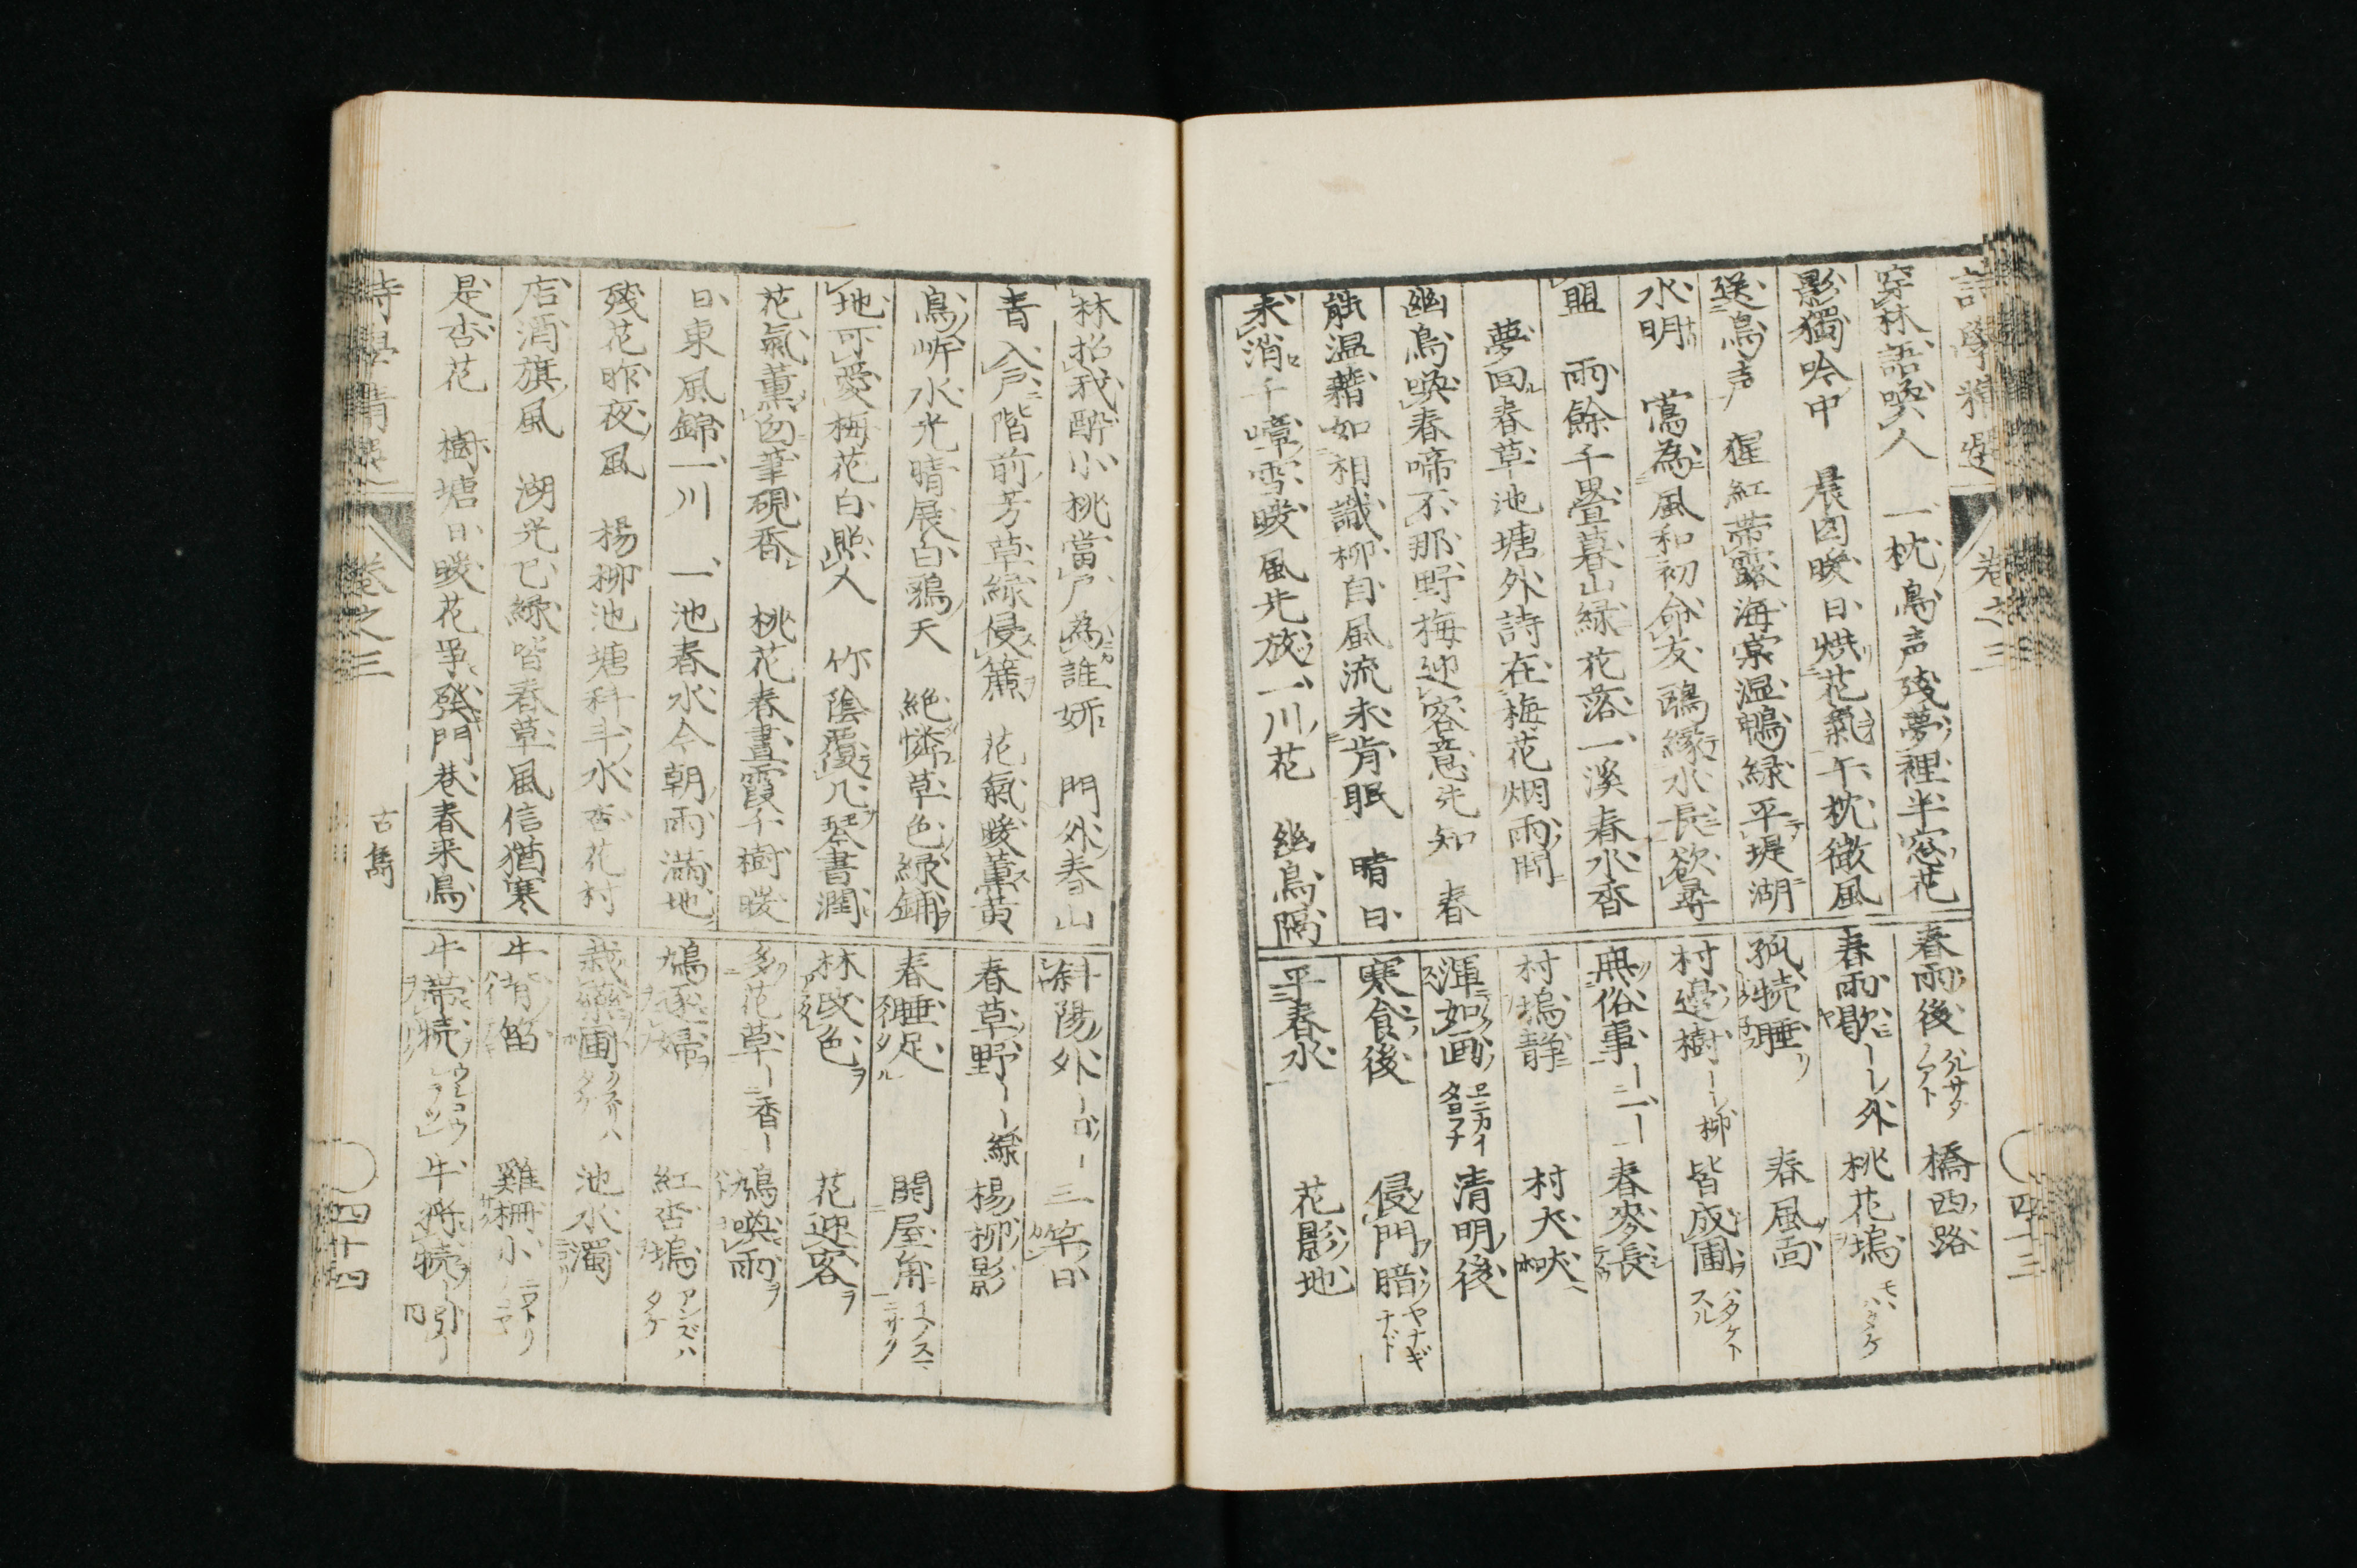 詩學精選
卷之三
四十三
穿林語喚人　一枕鳥声殘夢裡半窓花
影獨吟中　晨囪暖日烘花氣午枕微風
送鳥声　猩紅帯露海棠湿鴨緑平堤湖
水明　鴬為風和初命友鷗縁水長欲尋
盟　雨餘千疊暮山緑花落一溪春水香
夢回春草池塘外詩在梅花烟雨間
幽鳥喚春啼不那野梅迎客意先知　春
能温藉如相識柳自風流未肯眠　晴日
未消千嶂雪暖風先放一川花　幽鳥隔
春雨後　橋西路
春雨歇　外　桃花塢
孤犢睡　春風面
村邉樹　柳　皆成圃
無俗事　春麥長
村塢静　村犬吠
渾如画　清明後
寒食後　侵門暗
平春水　花影地
林招我酔小桃當戸為誰妍　門外春山
青入戸階前芳草緑侵簾　花氣暖薫黄
鳥听水光晴展白鴉天　絶憐草色緑鋪
地可愛梅花白照人　竹陰覆几琴書潤
花氣薫囪筆硯香　桃花春晝霞千樹暖
日東風錦一川　一池春水今朝雨滿地
殘花昨夜風　楊柳池塘科斗水杏花村
店酒旗風　湖光已緑皆春草風信猶寒
是杏花　樹塘日暖花爭発門巷春来鳥
斜陽外　三竿日
春草野　緑　楊柳影
春睡足　開屋角
林改色　花迎客
多花草　香　鳩喚雨
鳩逐婦　紅杏塢
栽藥圃　池水濁
牛背笛　雞柵小
牛帯犢　牛将犢
詩學精選
卷之三
四十四